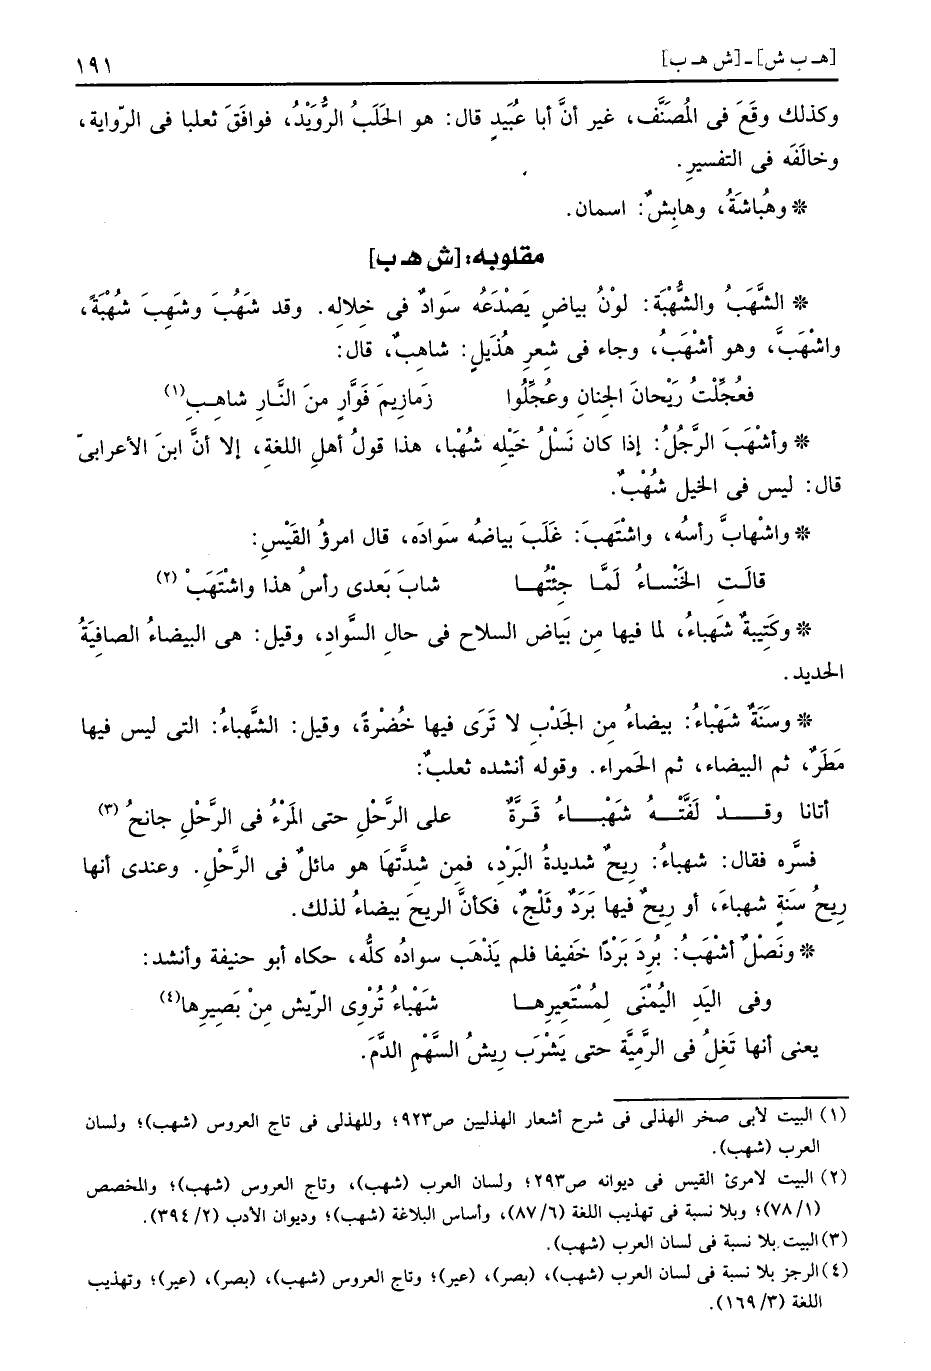 [هـ ب ش] - [ش هـ ب] ١٩١
وكذلك وقَعَ فى المُصَنَّف، غير أنَّ أبا عُبَيدٍ قال: هو الحَلَبُ الرُّوَيْدُ، فوافَقَ ثعلبا فى الرّواية،
وخالَفَه فى التفسيرِ.
* وهُباشَةُ، وهابِشٌ: اسمان.
مقلوبه: [ش هـ ب]
* الشَّهَبُ والشُّهْبَة: لوْنُ بياضٍ يَصْدَعُه سوَادٌ فى خِلالِه. وقد شَهُبَ وشَهِبَ شُهْبَةً،
واشْهَبَّ، وهو أشْهَبُ، وجاء فى شعرِ هُذَيلٍ: شاهِبٌ، قال:
فعُجِّلْتُ رَيْحانَ الجِنانِ وعُجِّلُوا زَمازِيمَ فَوَّارٍ منَ النَّارِ شاهِبِ(١)
* وأشْهَبَ الرَّجُلُ: إذا كان نَسْلُ خَيْلِه شُهْبا، هذا قولُ أهلِ اللغةِ، إلا أنَّ ابنَ الأعرابىّ
قال: ليس فى الخيل شُهْبٌ.
* واشْهابَّ رأسُه، واشْتَهبَ: غَلَبَ بياضُه سوَادَه، قال امرؤُ القَيْسِ:
قالَتِ الخَنْساءُ لَمَّا جِئْتُها شابَ بَعدى رأسُ هذا واشْتَهَبْ (٢)
* وكَتِيبةٌ شَهباءُ، لما فيها مِن بَياض السلاح فى حالِ السَّواد، وقيل: هى البيضاءُ الصافيَةُ
الحديد.
* وسَنَةٌ شَهْباءُ: بيضاءُ مِن الجَدْبِ لا تَرَى فيها خُضْرةً، وقيل: الشَّهباءُ: التى ليس فيها
مَطَرٌ، ثم البيضاء، ثم الحَمراء. وقوله أنشده ثعلبٌ:
أتانا وقــد لَفَّتْــهُ شَهْبــاءُ قَـرَّةٌ على الرَّحْلِ حتى المَرْءُ فى الرَّحْلِ جانحُ (٣)
فسَّره فقال: شهباءُ: رِيحٌ شديدةُ البَرْدِ، فمِن شدَّتها هو مائلٌ فى الرَّحْلِ. وعندى أنها
رِيحُ سَنةٍ شهباءَ، أو رِيحٌ فيها بَرَدٌ وثَلْجٌ، فكأنَّ الريحَ بيضاءُ لذلك.
* ونَصْلٌ أشْهَبُ: بُرِدَ بَرْدًا خَفيفا فلم يَذْهَب سوادُه كلُّه، حكاه أبو حنيفة وأنشد:
وفى اليَدِ اليُمْنَى لمُسْتَعِيرِهـا شَهْباءُ تُرْوِى الرّيش مِنْ بَصِيرِها(٤)
يعنى أنها تَغِلُ فى الرَّمِيَّة حتى يَشْرَب رِيشُ السَّهْمِ الدَّمَ.
(١) البيت لأبى صخر الهذلى فى شرح أشعار الهذليين ص٩٢٣؛ وللهذلى فى تاج العروس (شهب)؛ ولسان
العرب (شهب).
(٢) البيت لامرئ القيس فى ديوانه ص٢٩٣؛ ولسان العرب (شهب)، وتاج العروس (شهب)؛ والمخصص
(١/ ٧٨)؛ وبلا نسبة فى تهذيب اللغة (٦/ ٨٧)، وأساس البلاغة (شهب)؛ وديوان الأدب (٢/ ٣٩٤).
(٣) البيت بلا نسبة فى لسان العرب (شهب).
(٤) الرجز بلا نسبة فى لسان العرب (شهب)، (بصر)، (عير)؛ وتاج العروس (شهب)، (بصر)، (عير)؛ وتهذيب
اللغة (٣/ ١٦٩).